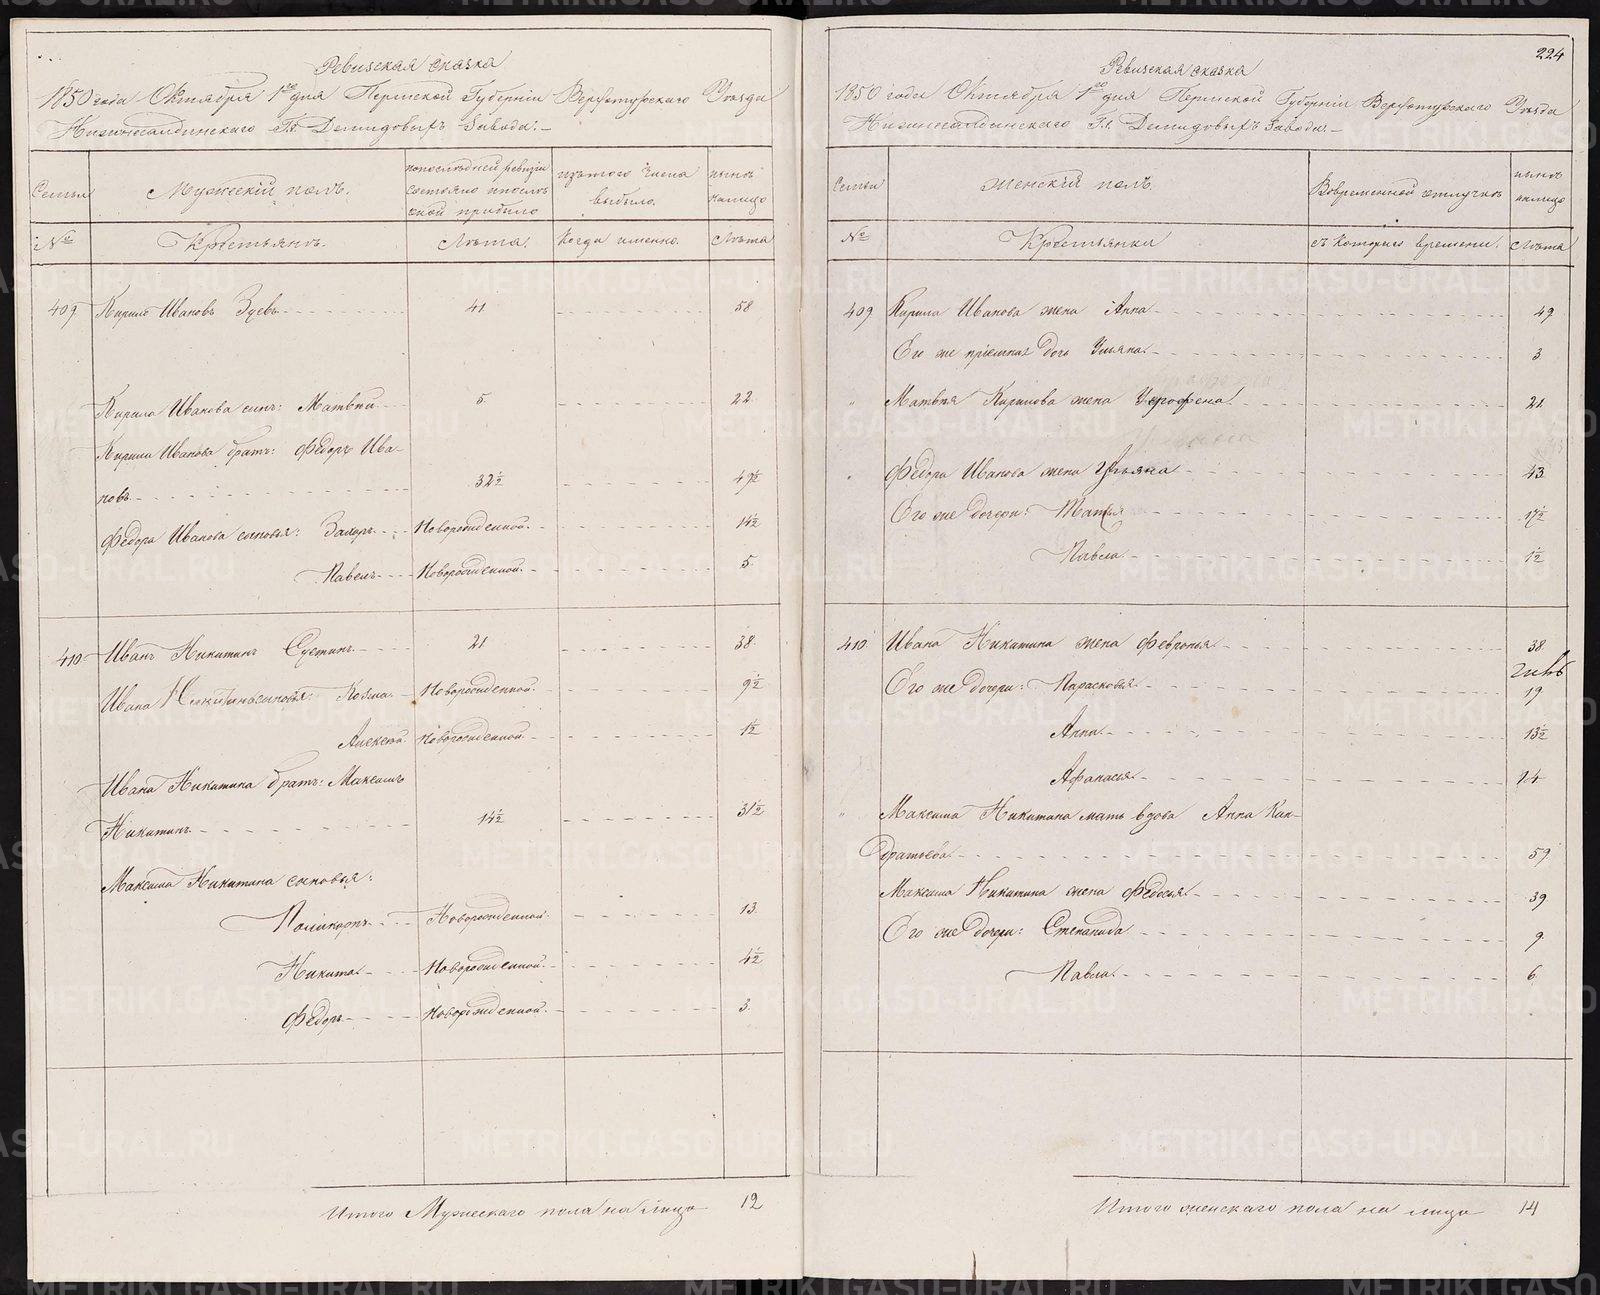 Ревизская сказка
1850 года Октября 1го дня Пермской Губернии Верхотурскаго Уезда
Нижнесалдинскаго Гг. Демидовыхъ Завода.
Семьи
Мужескій полъ.
попоследней ревизіи состояло ипосле оной прибыло
изътого числа выбыло.
ныне налицо
№
Крестьянъ.
Лета.
Когда именно.
Лета
409 Кирило Ивановъ Зуевъ 41 58
Кирила Иванова сынъ: Матвей 5. 22
Кирила Иванова братъ: Федоръ Ива-
новъ 32½ 49½
Федора Иванова сыновья: Захаръ Новорожденной. 14½
Павелъ Новорожденной. 5.
410 Иванъ Никитинъ Сустинъ 21 38.
Ивана Никитина сыновья: Козма Новорожденной. 9½
Алексей Новорожденной. 1½
Ивана Никитина братъ: Максимъ
Никитинъ 14½ 31½
Максима Никитина сыновья:
Поликарпъ Новорожденной. 13.
Никита Новорожденной. 4½
Федоръ Новорожденной. 3.
Итого Мужескаго пола на лицо 12
224
Ревизская сказка
1850 года Октября 1го дня Пермской Губерніи Верхотурскаго Уезда
Нижнесалдинскаго Гг. Демидовыхъ Завода.
Семьи
Женскій полъ.
Вовременной отлучке
ныне налицо
№
Крестьянки
съ Котораго времени.
Лета
409 Кирила Иванова жена Анна 49
Его же приемная дочь Ульяна 3
" Матвея Кирилова жена 21.
" Федора Иванова жена Ульяна 43
Его же дочери: 17½
Павла 1½
410 Ивана Никитина жена Февронья 38.
Его же дочери: Парасковья 19
Анна 13½
Афанасья 14
" Максима Никитина мать вдова Анна Кон-
дратьева 59
Максима Никитина жена Федосья 39
Его же дочери: Степанида 9.
Павла 6
Итого женскаго пола на лицо 14
METRIKI.GASO-URAL.RU